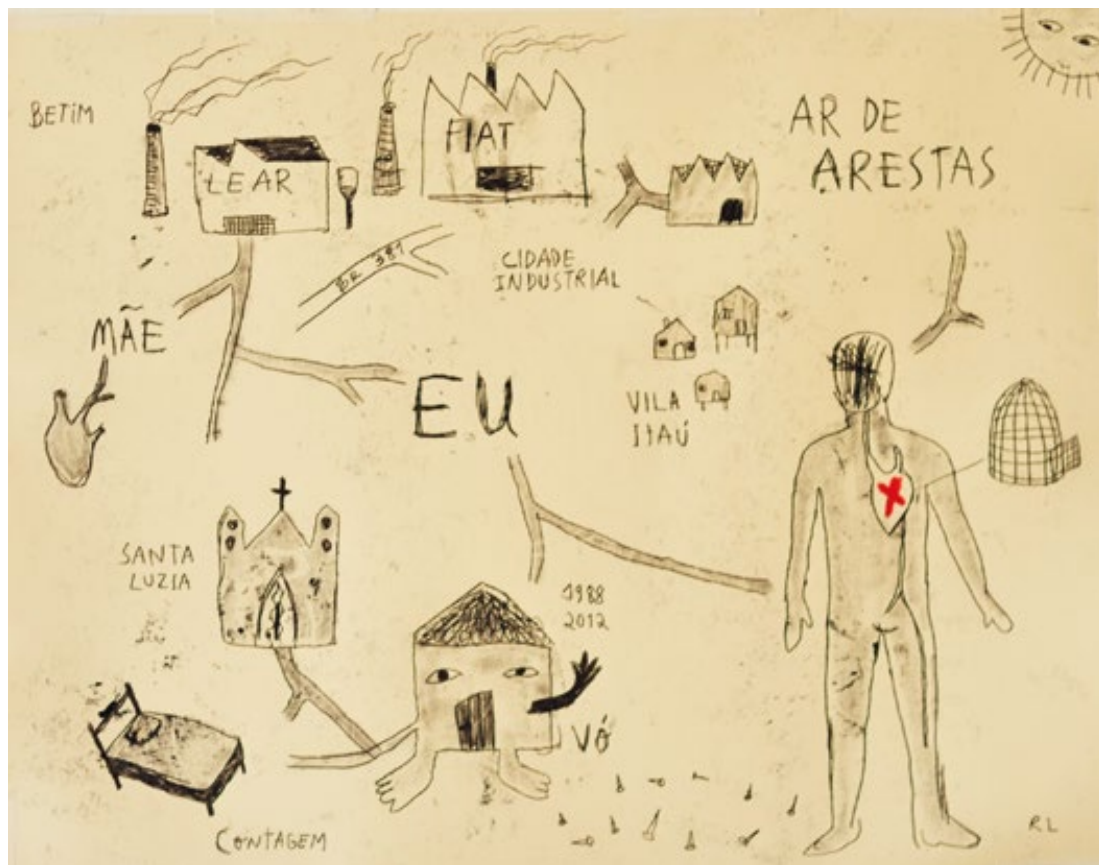 BETIM
LEAR
FIAT
AR DE
ARESTAS
BR 381
CIDADE
INDUSTRIAL
MÃE
EU
VILA
ITAÚ
X
SANTA
LUZIA
1988
2012
VÓ
CONTAGEM
RL